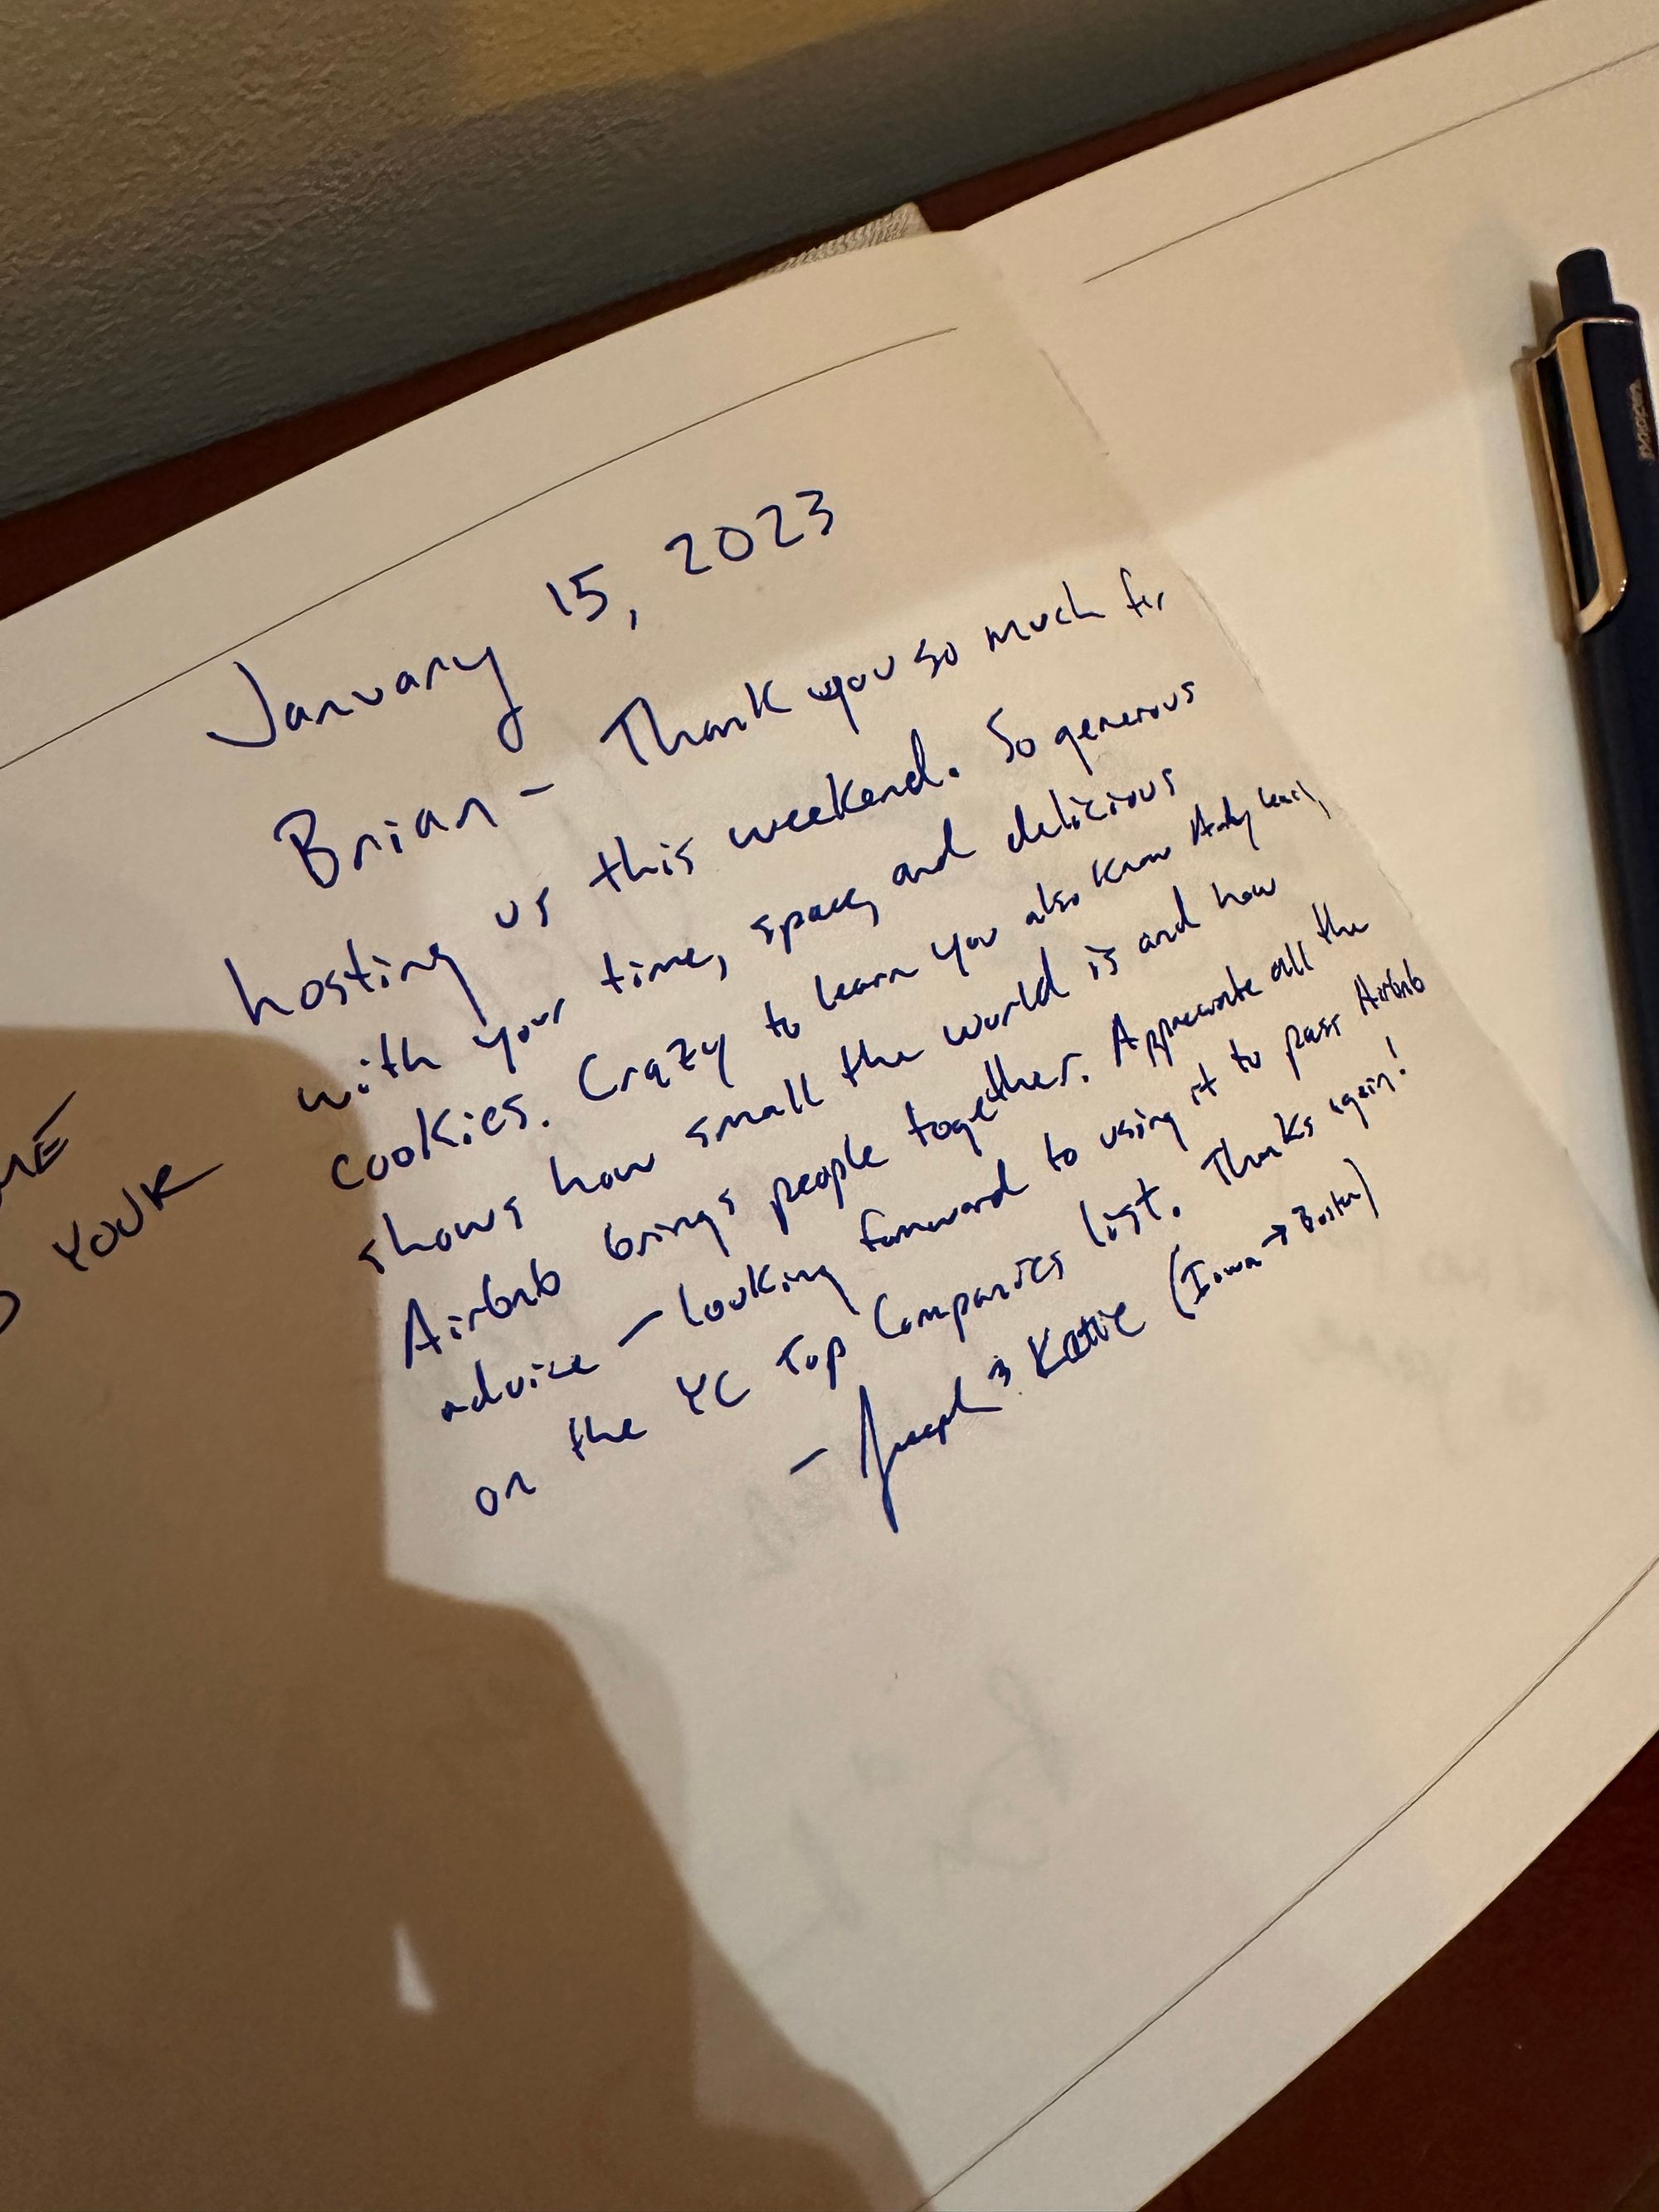 January 15, 2023
Brian - Thank you so much for
hosting us this weekend. So generous
with your time, space, and delicious
cookies. Crazy to learn you also know Andy
shows how small the world is and how
Airbnb brings people together. Appreciate all the
advice - looking forward to using it to pass Airbnb
on the YC Top Companies list. Thanks again!
- Joseph & Katie (Iowa → Boston)
YOUR